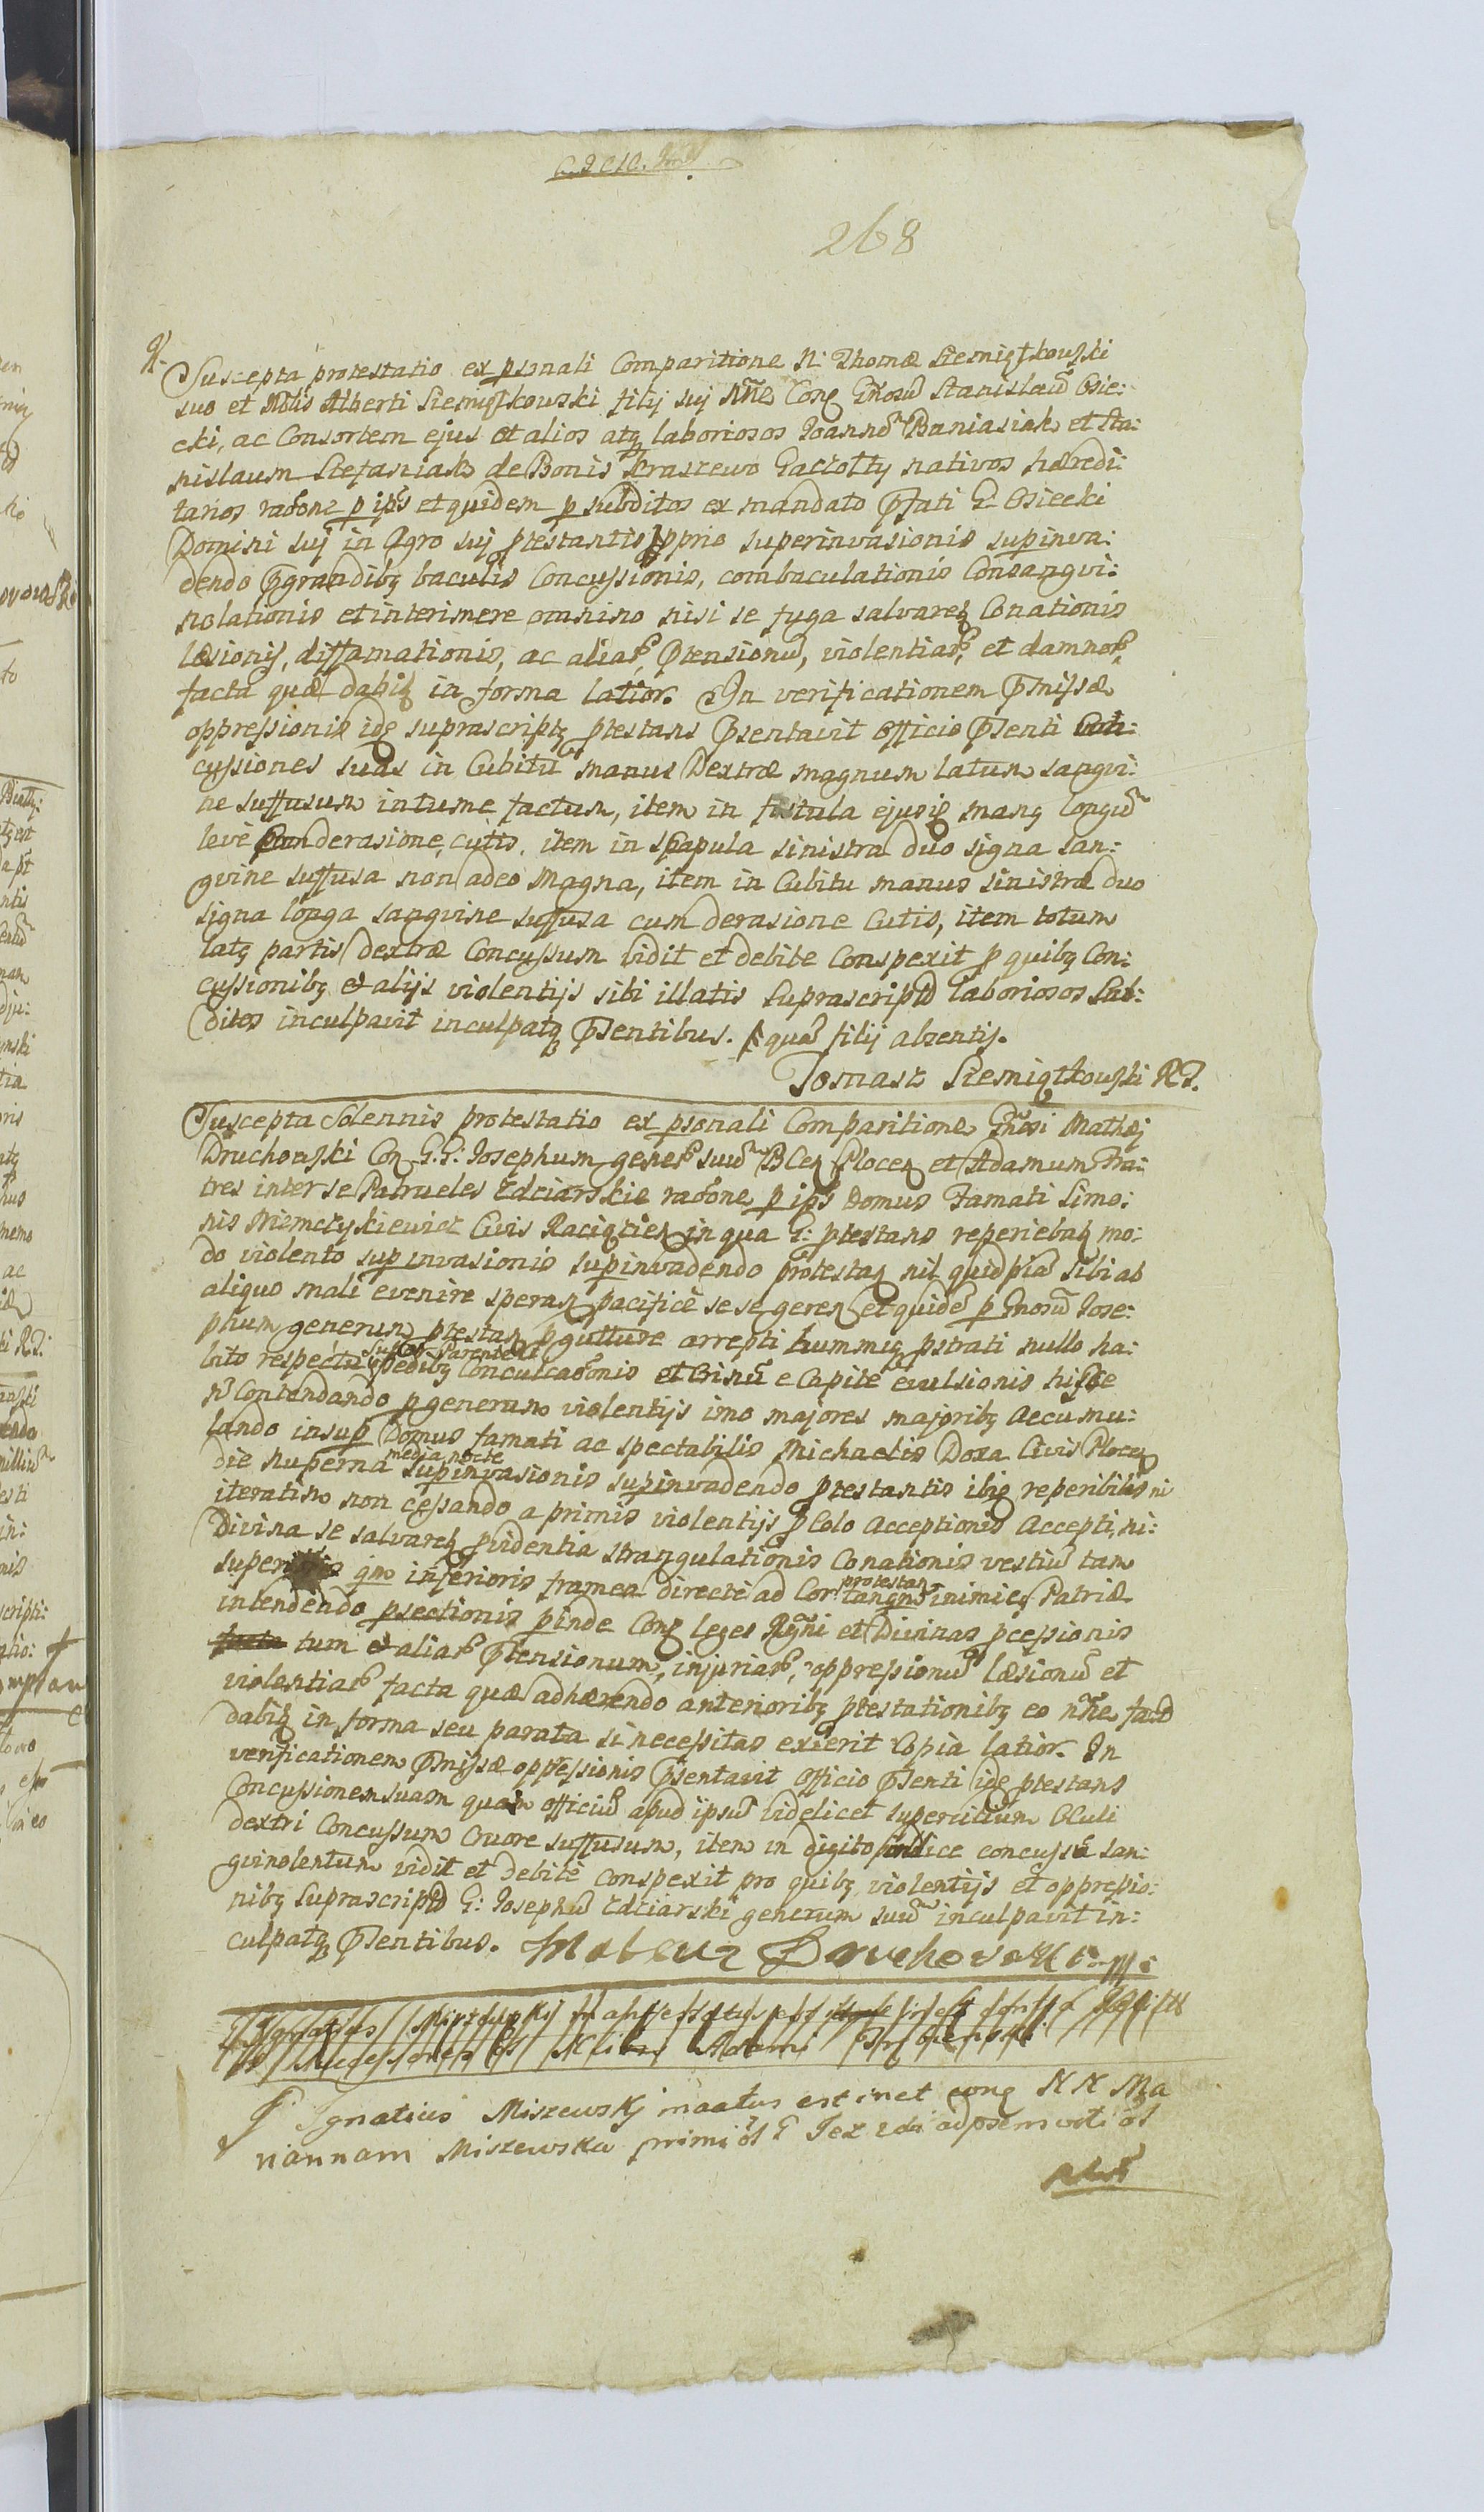 268
Suscepta protestatio ex psonali Comparitione N: Thomæ Siemiątkowski
suo et Nobis Alberti Siemiątkowski filij suj nne Con Gnosu Stanislau Osie:
cki, ac Consortem ejus et alios atq laboriosos Joanne Baniasiak et Sta:
nislaum Stefaniak de Bonis Kraszewo Gaczołty nativos hæredi:
tarios raone p ips et quidem p subditos ex mandato Pfati G. Osiecki
Domini suj in Agro suj ptestantis pprio superinvasionis supinva:
dendo pgrandibq baculis Concussionis, combaculationis Consangvi:
nolationis et interimere omnino nisi se fuga salvaret Conationis
læsionis, diffamationis, ac aliar Ptensionu, violentiar, et damnor,
facta quæ dabit in forma latior. In verificationem Pmissæ
oppressionis ide suprascriptq ptestans Psentavit Officio Psenti Con:
cussiones suas in Cubitu manus Dextræ magnum latum sangvi:
ne suffusum intume factum, item in fistula ejusd manq longu
leve cum derasione cutis, item in scapula sinistra duo signa san:
gvine suffusa non adeo magna, item in Cubitu manus sinistræ duo
signa longa sangvine suffusa cum derasione Cutis, item totum
latq partis dextræ Concussum vidit et debite Conspexit p quibq Con:
cussionibq et alijs violentijs sibi illatis Suprascriptos laboriosos Sub:
ditos inculpavit inculpatq Psentibus. qua filij absentis.
Tomasz Siemiątkowski
Suscepta Solennis protestatio ex psonali Comparitione Gnosi Mathej
Druchowski Con G.G: Josephum gener suu B Cen Plocen et Adamum Fra:
tres inter se Patrueles Zdziarskie raone p ips Domus Famati Simo:
nis Niemczykiewicz Civis Raciązien in qua G: ptestans reperiebat mo:
do violento supinvasionis supinvadendo protestan nil quidpia sibi ab
aliquo mali evenire speran pacifice se se geren et quide p Gnosu Jose:
phum generum ptestan p gutture arrepti hummiq pstrati nullo ha:
bito respectu Parentis pedibq Conculcaonis et Crinu e Capite evulsionis hisce
n Contendando p generum violentijs imo majores majoribq accumu:
lando insup Domus famati ac spectabilis Michaelis Doxa Civis Plocen
die nuperna media nocte supinvasionis supinvadendo ptestantis ibiq reperibilis ni
iteratim non cessando a primis violentijs p Colo acceptionis Accepti, ni:
Divina se salvaret pvidentia strangulationis Conationis vestiu tam
superioris qm inferioris framea directe ad Cor protestan tanqu inimicq Patriæ
intendendo psectionis pinde Con leges Regni et Divinas pcessionis
tum et aliar Ptensionum, injuriar, oppressionu læsionu et
violentiar facta quæ adhærendo anterioribq ptestationibq eo nne fact
dabit in forma seu parata si necessitas exierit Copia latior. In
verificationem Pmissæ oppressionis Psentavit Officio Psenti ide ptestans
Concussionem suam quam officiu apud ipsu videlicet supercilium Oculi
dextri Concussum Cruore suffusum, item in digito indice concussu san:
gvinolentum vidit et debite conspexit pro quibq violentijs et oppressio:
nibq Suprascriptus G: Josephu Zdziarski generum suu inculpavit in:
culpatq Psentibus. Mateusz Druchowski
Ignatius Miszewskj
Successores Adami
Ignatius Miszewskj est inct conq N N Ma
riannam Miszewska primi